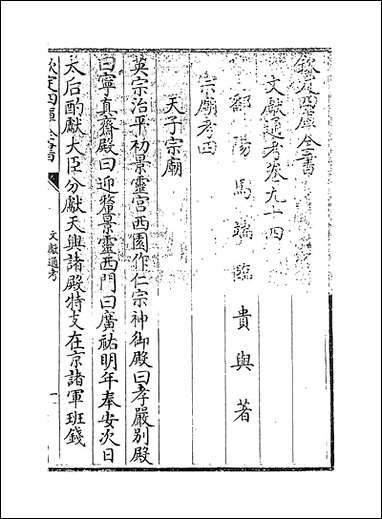 欽定四庫全書
文獻通考卷九十四
鄱陽馬端臨貴與著
宗廟考四
天子宗廟
英宗治平初景靈宮西園作仁宗神御殿曰孝嚴別殿
曰寧真齋殿曰迎釐景靈西門曰廣祐明年奉安次日
太后酌獻大臣分獻天興諸殿特支在京諸軍班錢
欽定四庫全書
文獻通考
一